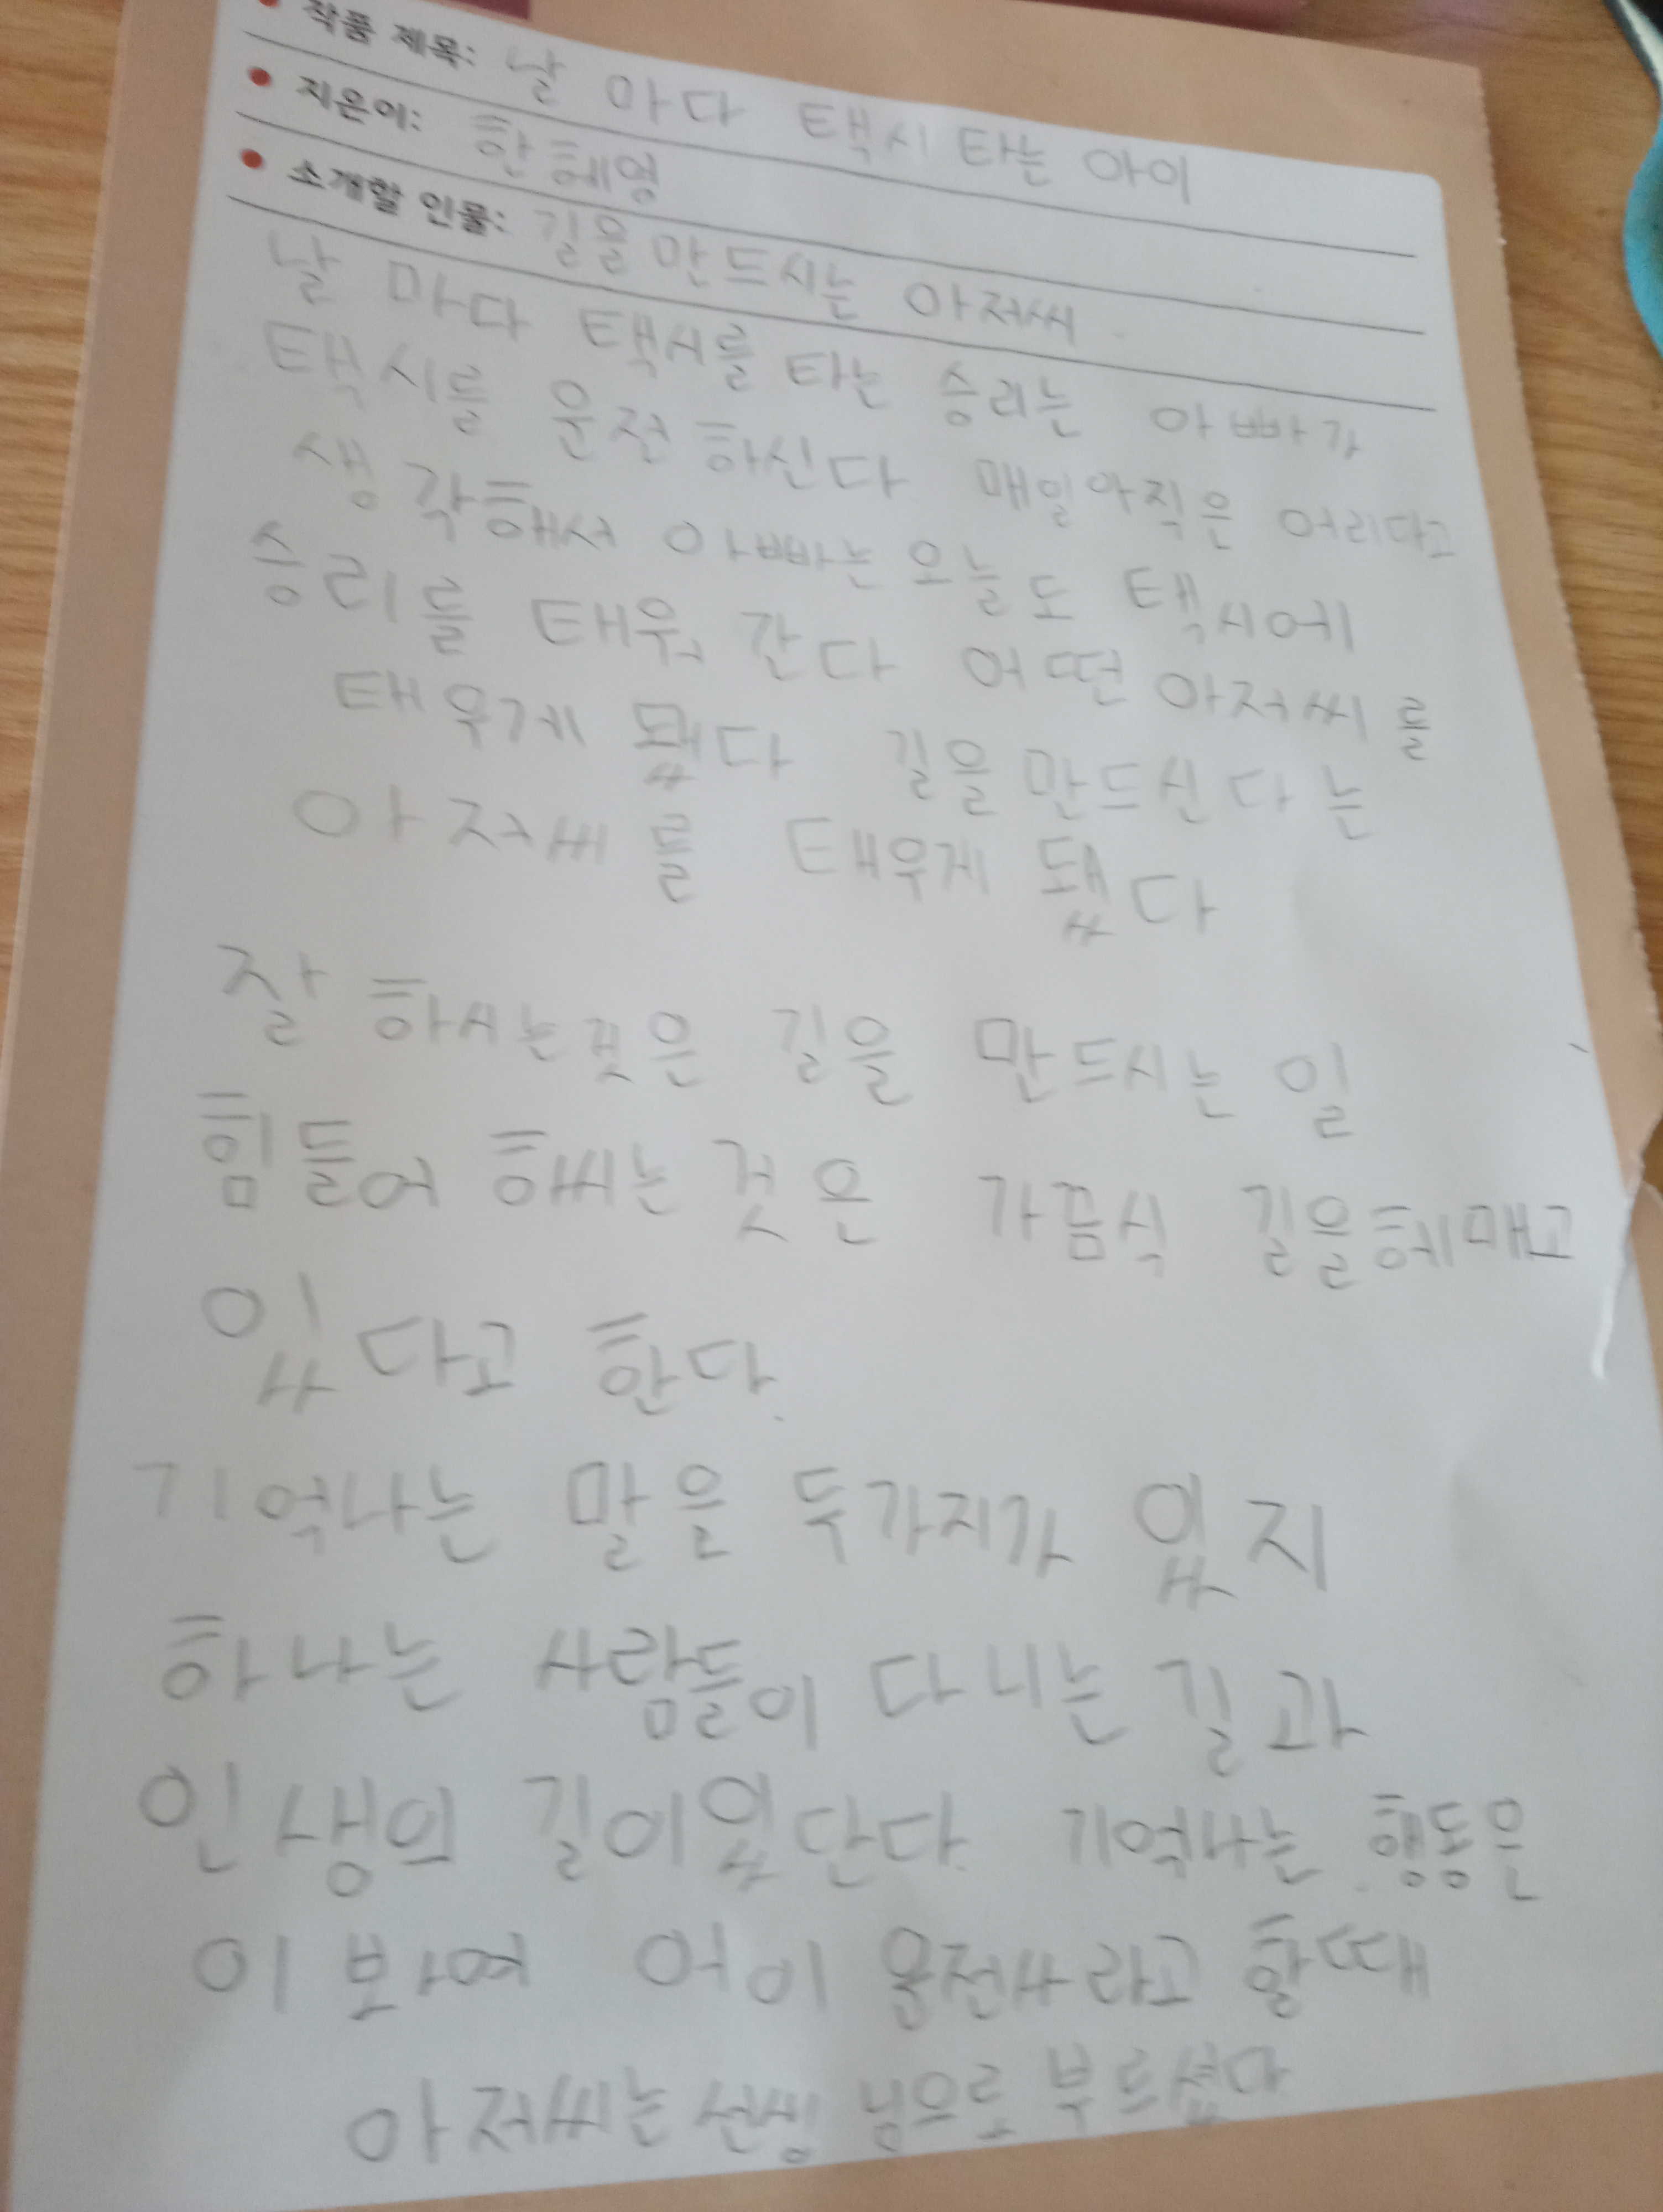 작품 제목: 날 마다 택시 타는 아이
지은이: 한혜영
소개할 인물: 길을 만드시는 아저씨
날 마다 택시를 타는 승리는 아빠가
택시를 운전 하신다 매일아직은 어리다고
생각해서 아빠는 오늘도 택시에
승리를 태워 간다 어떤 아저씨를
태우게 됐다 길을 만드신다는
아저씨를 태우게 됐다
잘 하시는것은 길을 만드시는 일
힘들어 하씨는 것은 가끔식 길을헤매고
있다고 한다.
기억나는 말은 두가지가 있지
하나는 사람들이 다니는 길과
인생의 길이있단다. 기억나는 행동은
이 봐여 어이 운전사라고 할때
아저씨는 선생님으로 부르셨다